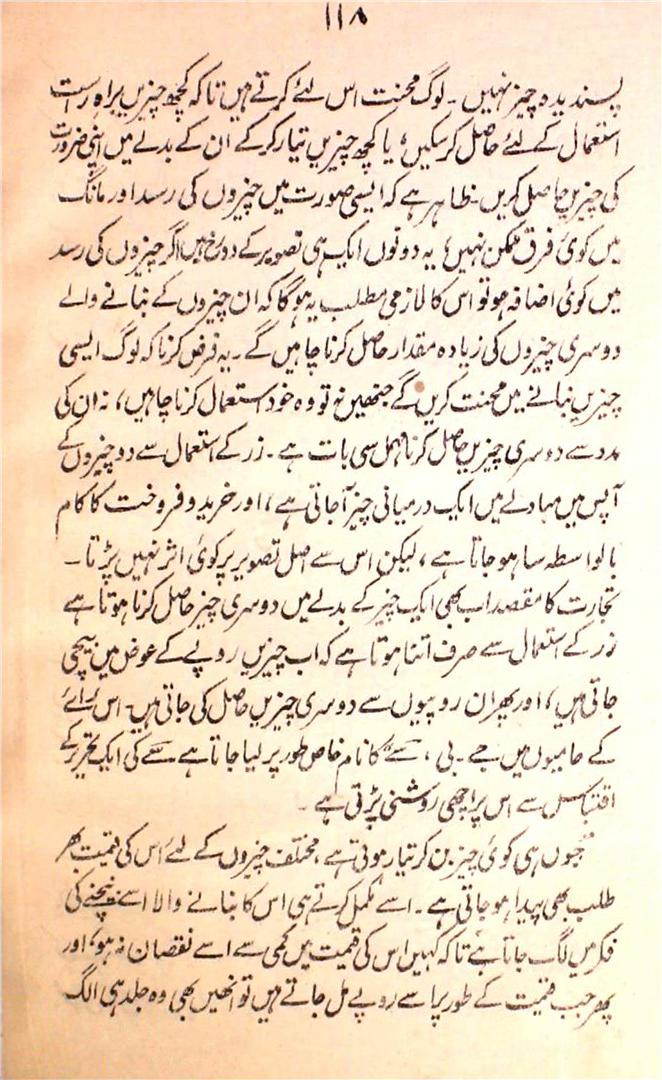 ۱۱۸
پسندیدہ چیز نہیں۔ لوگ محنت اس لئے کرتے ہیں تاکہ کچھ چیزیں براہ راست
استعمال کے لئے حاصل کرسکیں؛ یا کچھ چیزیں تیار کرکے ان کے بدلے میں اپنی ضرورت
کی چیزیں حاصل کریں۔ ظاہر ہے کہ ایسی صورت میں چیزوں کی رسد اور مانگ
میں کوئی فرق ممکن نہیں؛ یہ دونوں ایک ہی تصویر کے دو رخ ہیں اگر چیزوں کی رسد
میں کوئی اضافہ ہو تو اس کا لازمی مطلب یہ ہوگا کہ ان چیزوں کے بنانے والے
دوسری چیزوں کی زیادہ مقدار حاصل کرنا چاہیں گے۔ یہ فرض کرنا کہ لوگ ایسی
چیزیں بنانے میں محنت کریں گے جنھیں نہ تو وہ خود استعمال کرنا چاہیں، نہ ان کی
مدد سے دوسری چیزیں حاصل کرنا مہمل سی بات ہے۔ زر کے استعمال سے دو چیزوں کے
آپس میں مبادلے میں ایک درمیانی چیز آجاتی ہے، اور خرید و فروخت کا کام
بالواسطہ سا ہو جاتا ہے، لیکن اس سے اصل تصویر پر کوئی اثر نہیں پڑتا۔
تجارت کا مقصد اب بھی ایک چیز کے بدلے میں دوسری چیز حاصل کرنا ہوتا ہے
زر کے استعمال سے صرف اتنا ہوتا ہے کہ اب چیزیں روپے کے عوض میں بیچی
جاتی ہیں، اور پھر ان روپیوں سے دوسری چیزیں حاصل کی جاتی ہیں۔ اس رائے
کے حامیوں میں جے۔ بی، سے کا نام خاص طور پر لیا جاتا ہے سے کی ایک تحریر کے
اقتباس سے اس پر اچھی روشنی پڑتی ہے۔
"جوں ہی کوئی چیز بن کر تیار ہوتی ہے، مختلف چیزوں کے لئے اس کی قیمت بھر
طلب بھی پیدا ہو جاتی ہے۔ اسے مکمل کرتے ہی اس کا بنانے والا اسے بیچنے کی
فکر میں لگ جاتا ہے تاکہ کہیں اس کی قیمت میں کمی سے اسے نقصان نہ ہو، اور
پھر جب قیمت کے طور پر اسے روپے مل جاتے ہیں تو انھیں بھی وہ جلد ہی الگ